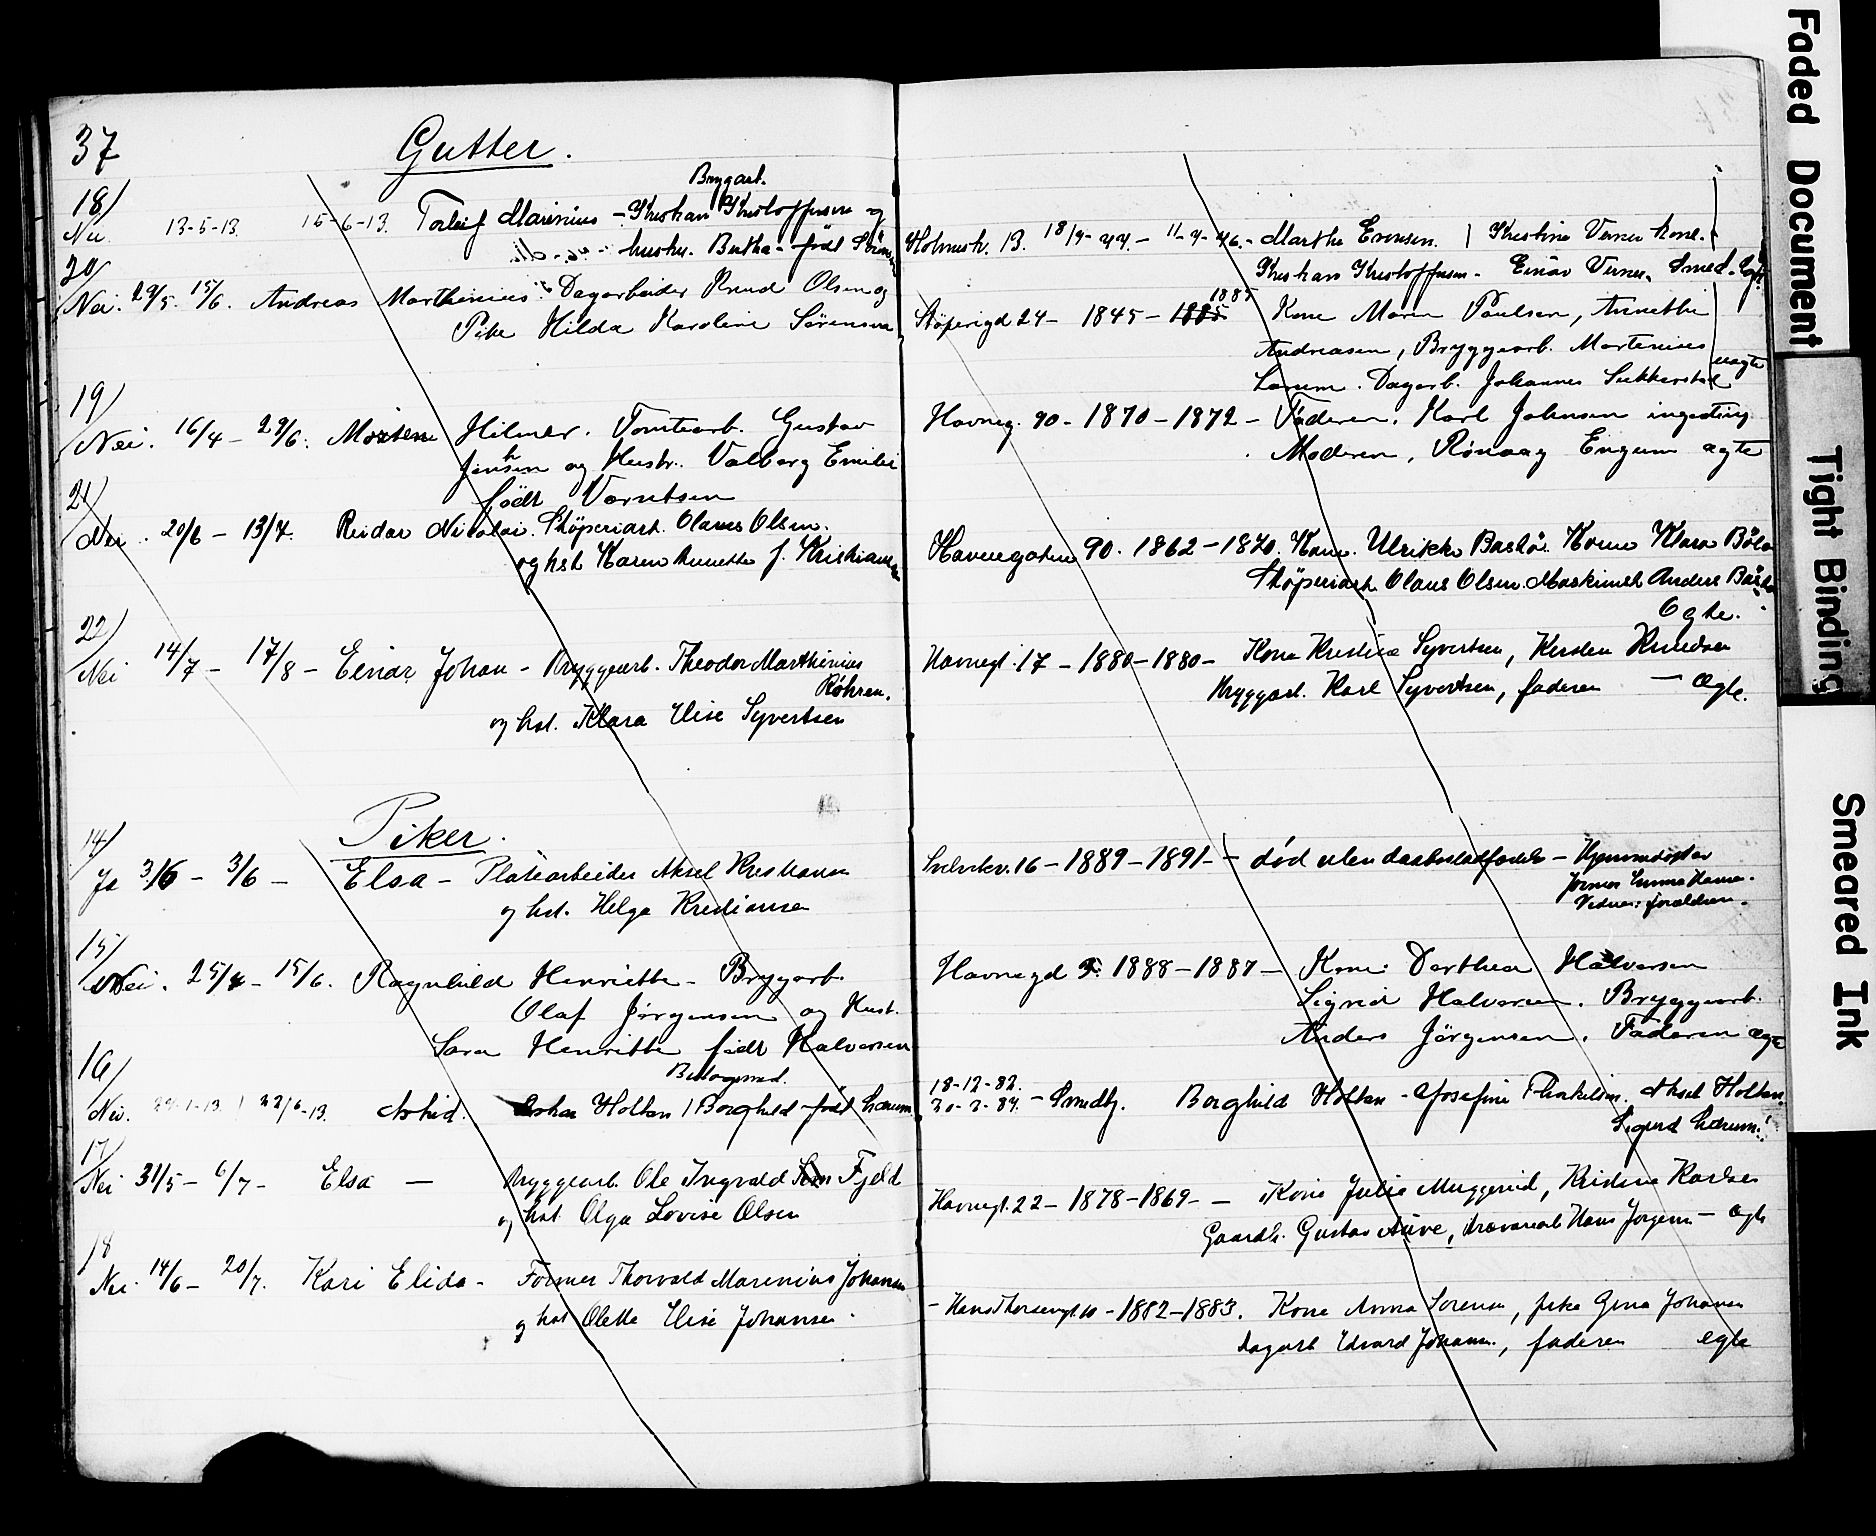 37
Gutter.
Bryggarb.
18/
Nei 13-5-13. 15-6-13. Torleif Marinius - Kristian Kristoffersen og
hustru. Bertha - født
Holmestr. 13. 18/4-44 - 11-4-46. - Marthe Evensen. | Kristine Verner kone.
Kristian Kristoffersen - Einar Verner. Smed. Egte
20/
Nei. 29/5. 15/6. Andreas Marthinius. Dagarbeider Knud Olsen og
Pike Hilda Karoline Sørensen
1885
Støperigd 24 - 1845 - 1885 Kone Maren Paulsen, Annette
Andreasen, Bryggearb. Martenius
Larum. Dagarb. Johannes Sukkerstad uægte
19/
Nei. 16/4 - 29/6. Morten Hilmer. Tomtearb. Gustav
Jensen og Hustr. Valborg Emilie
født Varntsen
Havneg. 90 - 1870 - 1872 - Faderen. Karl Johnsen ingeniør
Moderen, Rønnaug Engum ægte
21/
Nei. 20/6 - 13/7. Reidar Nicolai. Støperiarb. Olaus Olsen.
og hst Karen Annette f. Kristiansen
Havnegaten 90. 1862 - 1870. Kone. Ulrikke Bastø. Kone Klara
Støperiarb. Olaus Olsen. Maskinist Anders Bastø
Egte.
22/
Nei 14/7 - 17/8 - Einar Johan - Bryggearb. Theodor Marthinius
Røhren.
og hst. Klara Elise Syvertsen
Havnegt. 17 - 1880 - 1880 - Kone Kristine Syvertsen, Kirsten Knudsen
Bryggarb. Karl Syvertsen, faderen - Egte.
Piker.
14/
Ja 3/6 - 3/6 - Elsa - Platearbeider Aksel Kristiansen
og hst. Helga Kristiansen
16 - 1889 - 1891 - død uten daabsbekræftelse - Hjemmedøpt av
Emma Hansen.
Vidner: forældrene.
15/
Nei. 25/4 - 15/6. Ragnhild Henriette - Bryggarb.
Olaf Jørgensen og Hust.
Sara Henriette født Halvorsen
Havnegd 5. 1888 - 1887 - Kone: Dorthea Halvorsen
Sigrid Halvorsen. Bryggearb.
Anders Jörgensen. Faderen ægte
16/
Nei. 29-1-13 / 22/6-13. Astrid. Oskar Holtan / Borghild - født Larum
18-12-82.
30-2-84. - Smedbg. Borghild Holtan - Josefine Thorkelsen. Aksel Holtan.
Sigurd Larum.
17/
Nei 31/5 - 6/7 - Elsa - Bryggearb. Ole Ingvald Fjeld
og hst Olga Lovise Olsen
Havnegt. 22 - 1878 - 1869 - - Kone Julie Muggerud, Kristine Karlsen
Gaardb. Gustav Auve, Hans Jørgens - Egte
18
Nei. 14/6 - 20/7. Kari Elida - Former Thorvald Marinius Johansen
og hst Olette Elise Johansen.
- Hans Thorsensgt. 10 - 1882 - 1883. Kone Anna Sørensen, pike Gina Johansen
Dagarb Edvard Johansen, faderen egte
Faded Document
Tight Binding
Smeared Ink